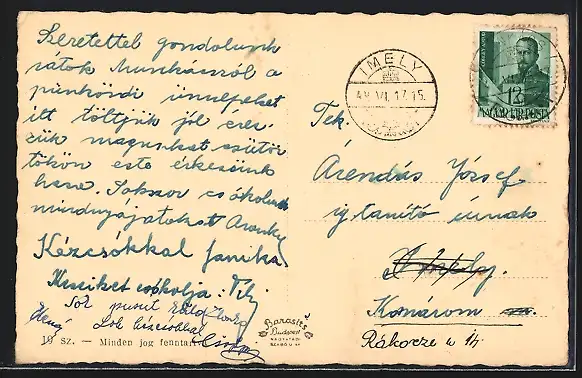 Szeretettel gondolunk
rátok Munkácsról a
pünkösdi ünnepeket
itt töltjük jól érez-
zük magunkat csütör
tökön este érkezünk
haza. Sokszor csókolunk
mindnyájatokat Aranka
Kézcsókkal Janika
Mindkét csókolja: Tilj
Sok puszit küld
Sok kézcsókkal
19 sz. — Minden jog fenntartva
Barasits
Budapest
IMELY
VI. 17. 15.
MAGYAR KIR. POSTA
12
Tek.
Árendás József
ig tanító úrnak
Komárom
Rákócze u